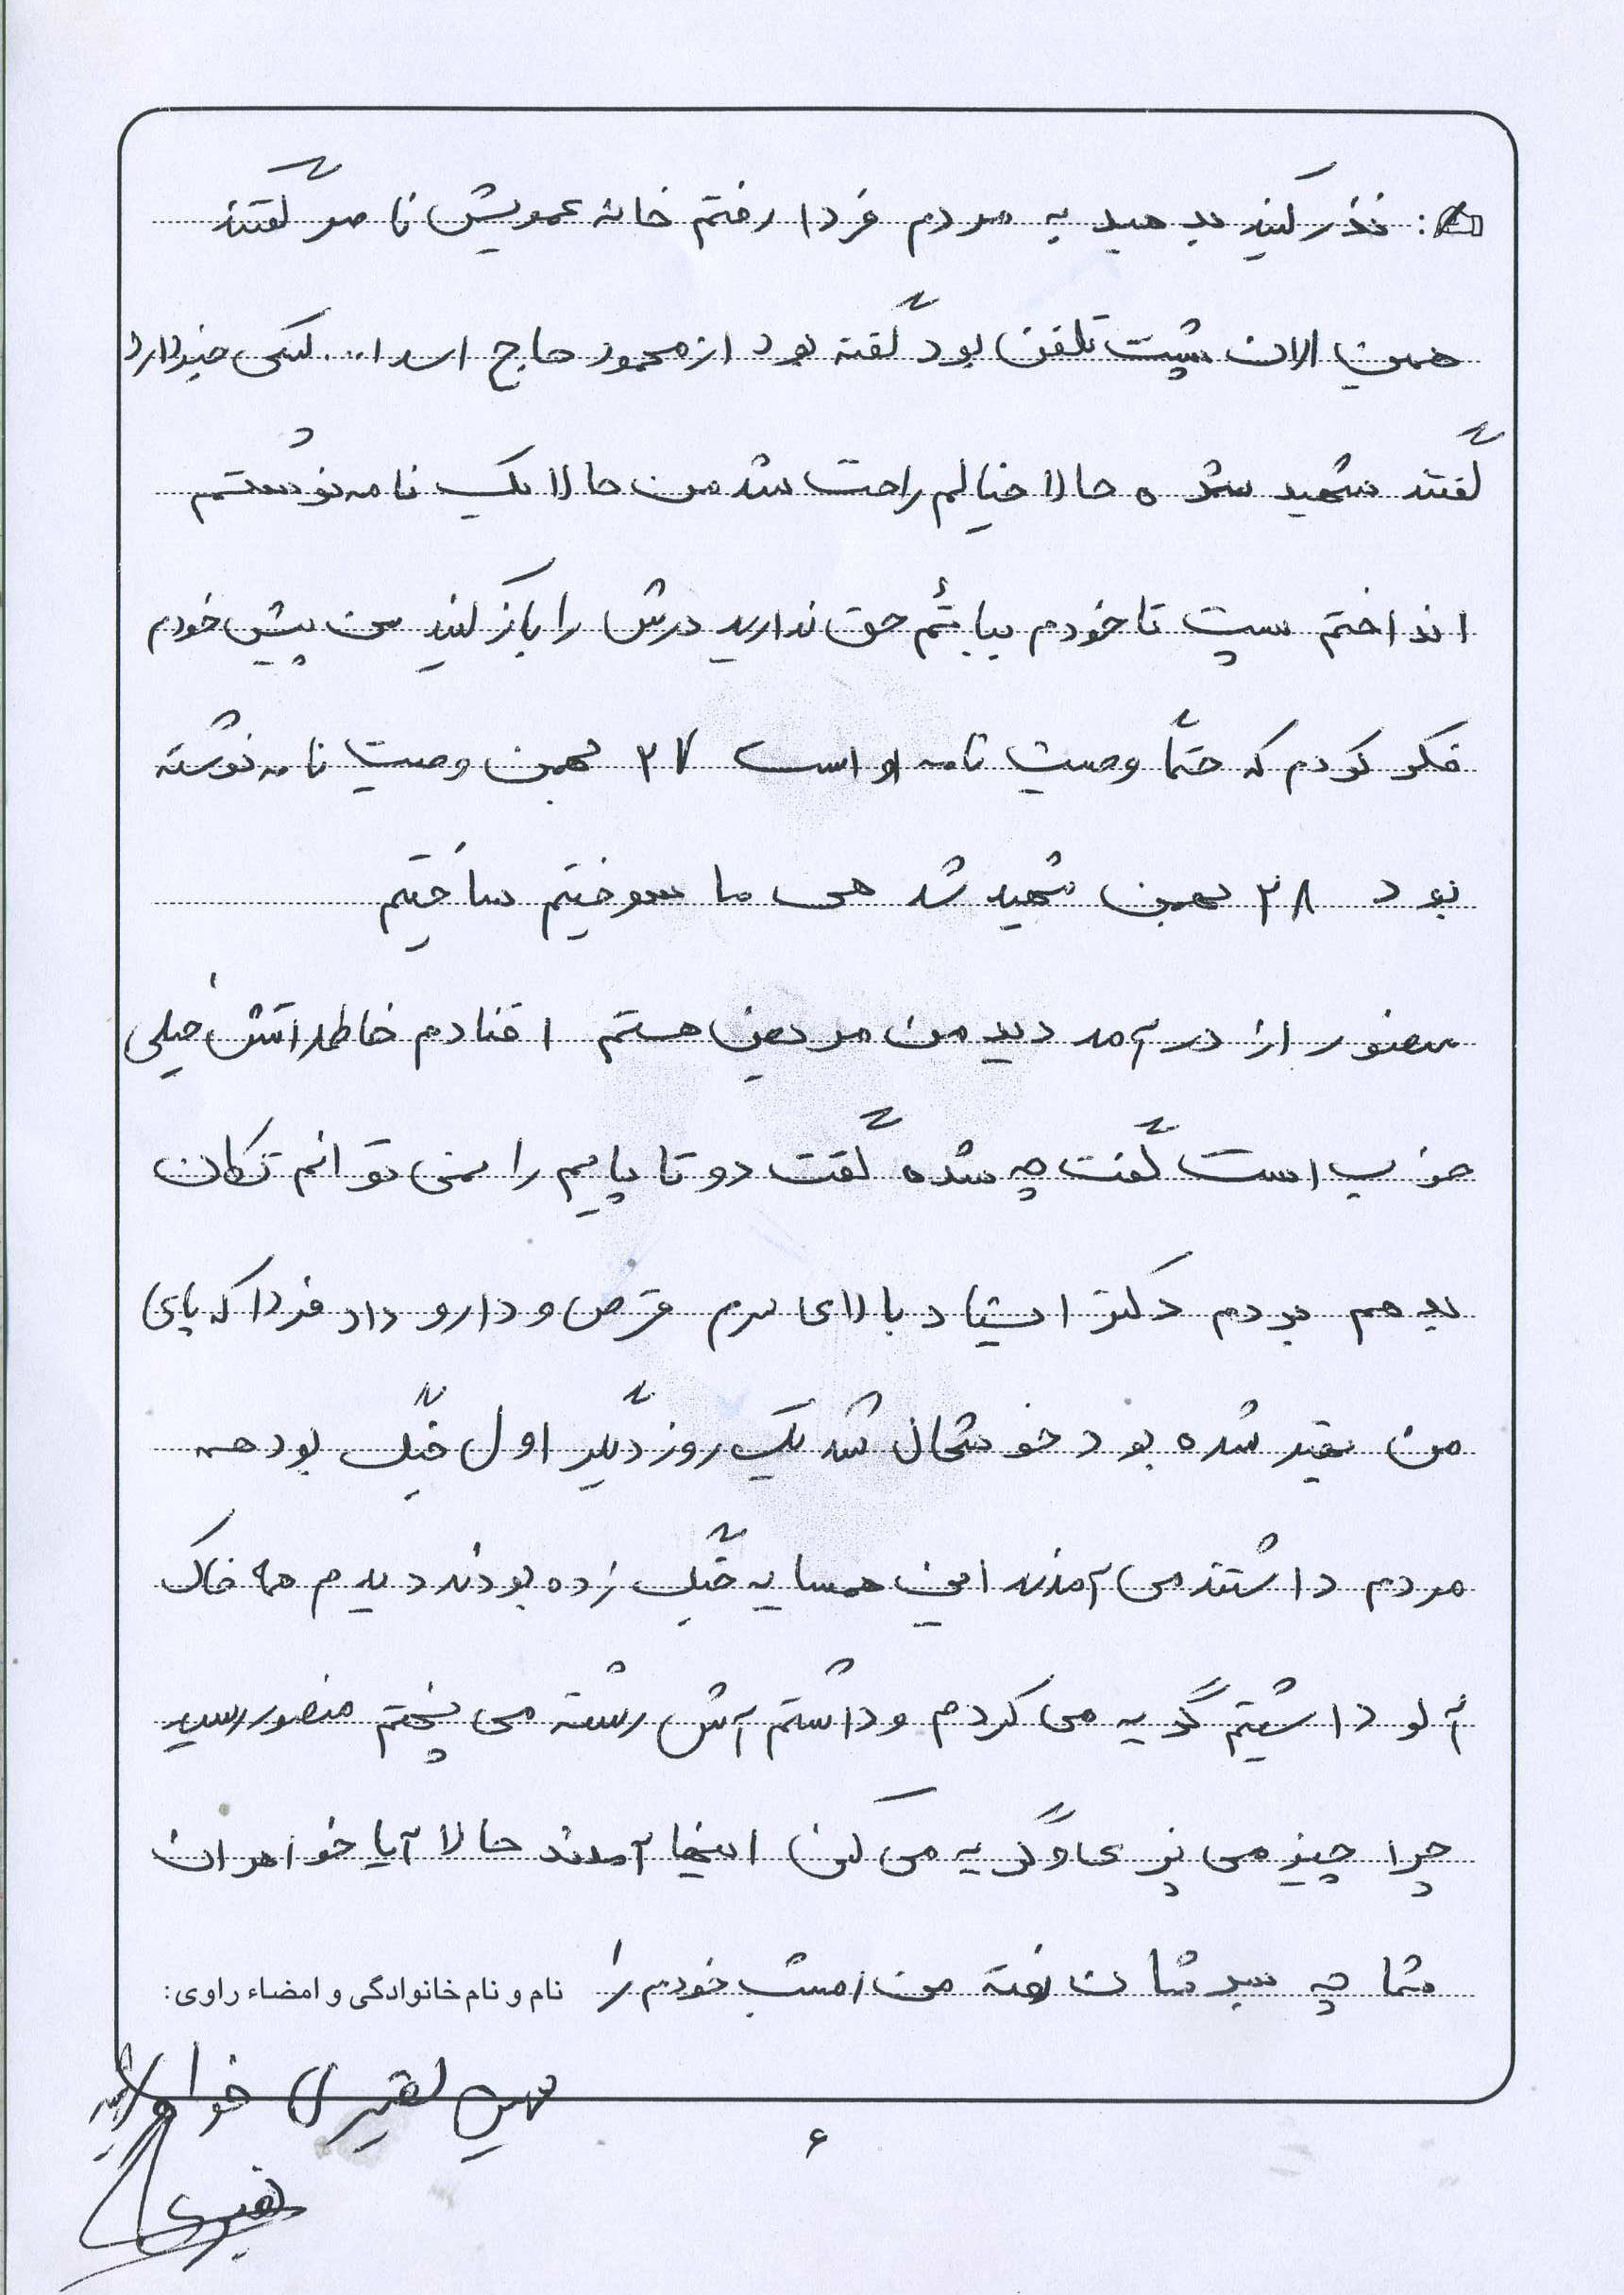 نذر کنید بدهید به مردم فردا رفتم خانه عمویش ناصر گفتند
همین الان پشت تلفن بود گفته بود از محمود حاج اسدا... کسی خبر دارد
گفتند شهید شده حالا خیالم راحت شد من حالا یک نامه نوشتم
انداختم پست تا خودم نیایم حق ندارید درش را باز کنید من پیش خودم
فکر کردم که حتماً وصیت نامه او است ۲۷ بهمن وصیت نامه نوشته
بود ۲۸ بهمن شهید شد هی ما سوختیم ساختیم
منصور از در آمد دید من مریض هستم افتادم خاطراتش خیلی
خوب است گفت چه شده گفت دو تا پایم را نمی توانم تکان
بدهم بردم دکتر ایستاد بالای سرم قرص و دارو داد فردا که پای
من بهتر شده بود خوشحال شد یک روز دیگر اول جنگ بود همه
مردم داشتند می آمدند این همسایه جنگ زده بودند دیدم همه خاک
آلود داشتم گریه می کردم و داشتم آش رشته می پختم منصور رسید
چرا چیز می پزی و گریه می کنی اینجا آمدند حالا آیا خواهران
شما چه سرشان رفته من امشب خودم را
نام و نام خانوادگی و امضاء راوی:
۶